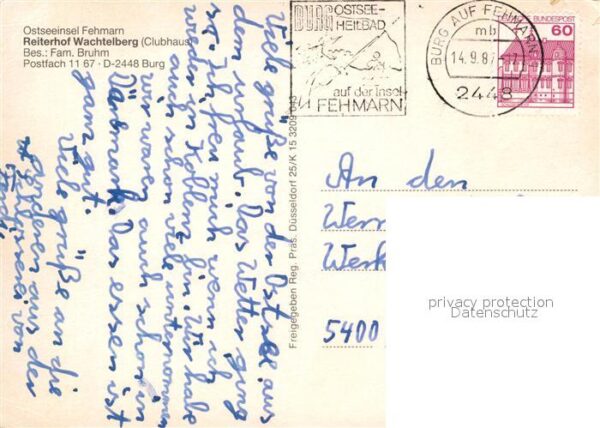 Ostseeinsel Fehmarn
Reiterhof Wachtelberg (Clubhaus)
Bes.: Fam. Bruhm
Postfach 11 67 · D-2448 Burg
BURG OSTSEE-
HEILBAD
auf der Insel
FEHMARN
BURG AUF FEHMARN
mb
14.9.87
2448
BUNDESPOST
60
Viele grüße von der Ostsee aus
dem urlaub. Das Wetter ging
so. Ich freu mich wenn ich
wieder in Koblenz bin. Wir habe
auch schon viel unternommen
wir waren auch schon in
Dänemark. Das essen ist
ganz gut.
Viele grüße an die
anderen aus der
von der
Freigegeben Reg. Präs. Düsseldorf 25/K 15 3209 043
An den
Wern
Werk
5400
privacy protection
Datenschutz